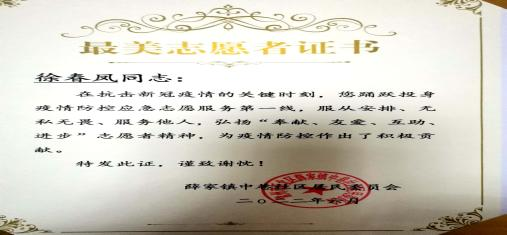 最美志愿者证书
徐春凤同志：
在抗击新冠疫情的关键时刻，您踊跃投身
疫情防控应急志愿服务第一线，服从安排、无
私无畏、服务他人，弘扬“奉献、友爱、互助、
进步”志愿者精神，为疫情防控作出了积极贡
献。
特发此证，谨致谢忱！
薛家镇中 社区居民委员会
二〇二二年 月